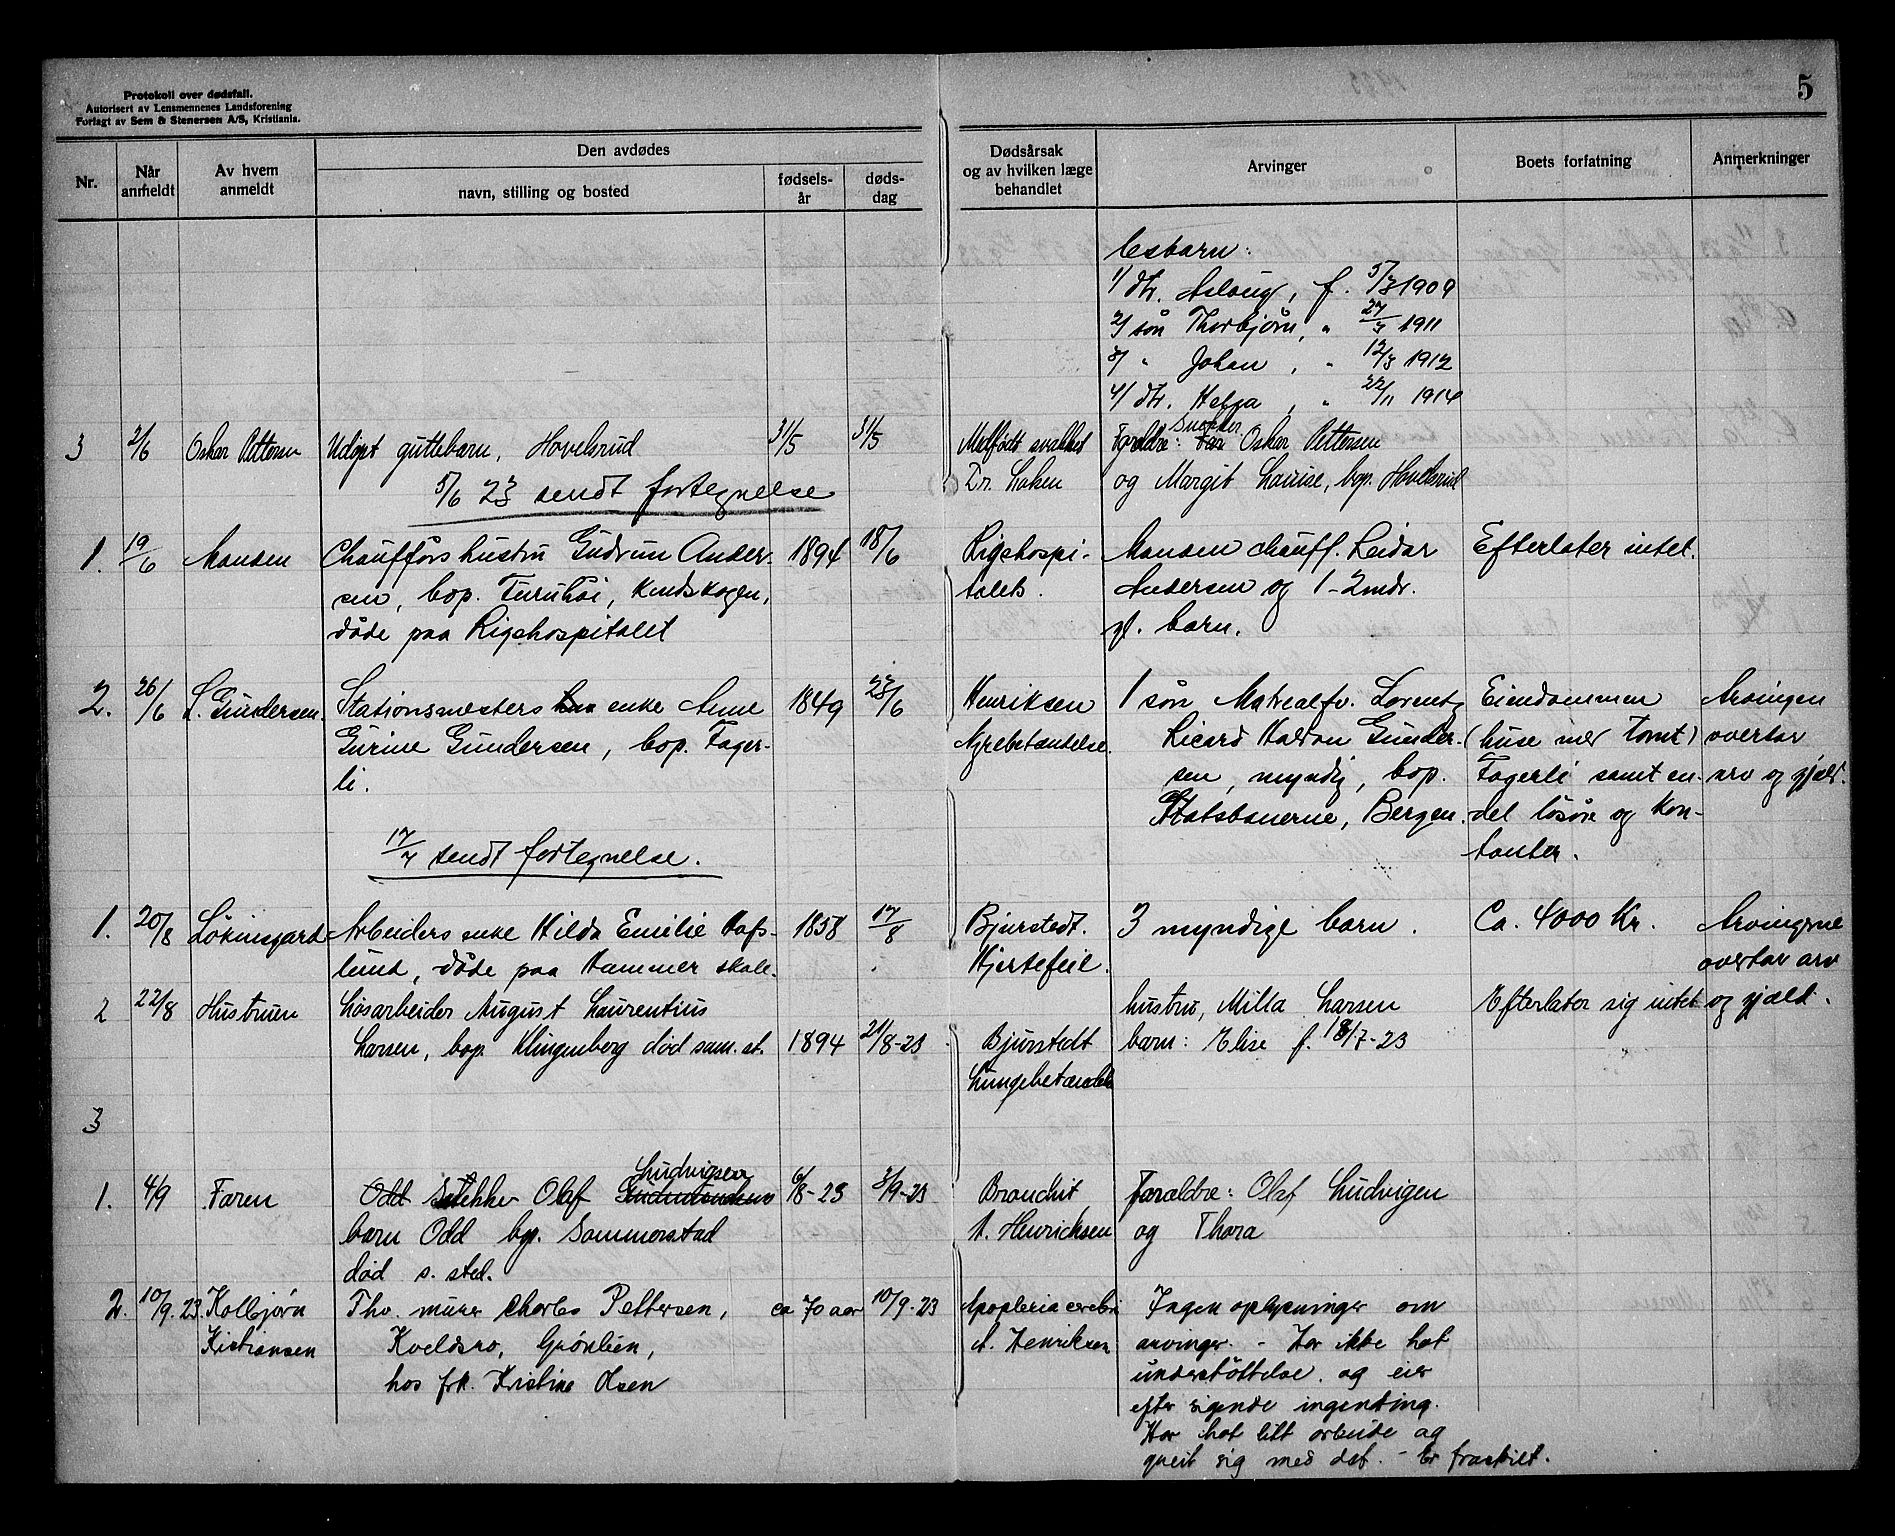 Protokoll over dødsfall.
Autorisert av Lensmennenes Landsforening
Forlagt av Sem & Stenersen A/S, Kristiania.
5
Nr.
Når anmeldt
Av hvem anmeldt
Den avdødes
navn, stilling og bosted
fødsels-år
døds-dag
Dødsårsak og av hvilken læge behandlet
Arvinger
Boets forfatning
Anmerkninger
1/ dtr. Aslaug, f. 5/3 1909
2/ søn Thorbjørn, " 27/7 1911
3/ " Johan, " 12/3 1912
4/ dtr. Helga, " 22/11 1914
3 2/6 Oskar Pettersen Udøpt guttebarn, Hovelsrud 31/5 31/5 Medfødt svakhet Forældre: Snekker Oskar Pettersen
Dr. Loken og Margit Louise, bop. Hovelsrud
5/6 23 sendt fortegnelse
1. 19/6 Manden Chaufførs hustru Gudrun Ander- 1894 18/6 Rigshospi- Manden chauff. Reidar Efterlater intet.
sen, bop. Furuhøi, talets. Andersen og 1-2 mdr.
døde paa Rigshospitalet gl. barn.
2. 26/6 L. Gundersen. Stationsmesters enke Anne 1849 23/6 Henriksen 1 søn Matrealfv. Lorentz Eiendommen Arvingen
Gurine Gundersen, bop. Fager- Nyrebetændelse. Ricard Haldon Gunder- (huse med tomt) overtar
li. sen, myndig, bop. Fagerli samt en- arv og gjæld.
Statsbanerne, Bergen. del løsøre og kon-
17/7 sendt fortegnelse. tanter.
1. 20/8 Løkensgard Arbeiders enke Hilda Emilie Hafs- 1858 17/8 Bjurstedt. 3 myndige barn. Ca. 4000 Kr. Arvingerne
lund, døde paa Hammer skole. Hjertefeil. overtar arv
2 22/8 Hustruen Løsarbeider August Laurentius hustru, Milla Larsen Efterlater sig intet og gjæld.
Larsen, bop. Klingenberg død sam. st. 1894 21/8-23 Bjurstedt barn: Elise f. 18/7-23
Lungebetændelse
3
1. 4/9 Faren Odd Snekker Olaf Ludvigsen 6/8-23 3/9-23 Bronchit Forældre: Olaf Ludvigen
barn Odd bop. Sommerstad A. Henricksen og Thora
død s. sted.
2. 10/9.23 Kolbjørn Fhv. murer Charles Pettersen, ca 70 aar 10/9-23 Apoplexia cerebri Ingen oplysninger om
Kristiansen Kveldsro, Grønlien, A. Henriksen arvinger. - Har ikke hat
hos frk. Kristine Olsen understøttelse. og eier
efter sigende ingenting.
Har hat litt arbeide og
greit sig med det. - Er fraskilt.